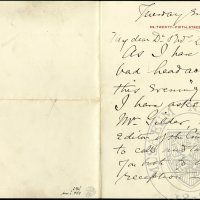 Tuesday
TWENTY-FIFTH STREET
My dear Dr
As I have
bad headac
this evening
I have aske
Mr Gilder,
Editor of the Cen
to call and ta
you both to
reception